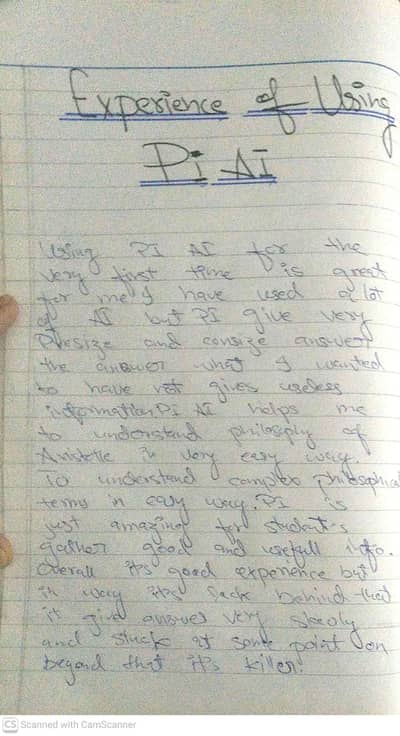 Experience of Using
Pi AI
Using PI AI for the
very first time is great
for me I have used a lot
of AI but PI give very
Presize and consize answer
the answer what I wanted
to have not gives useless
information PI AI helps me
to understand philosiply of
Aristotle in very easy way.
To understand complex philosophical
terms in easy way. PI is
just amazing for student's
gather good and usefull info.
Overall it's good experience but
in way it's back behind that
it give answer very slowly
and stuck at some point on
begand that it's killer!
CS Scanned with CamScanner